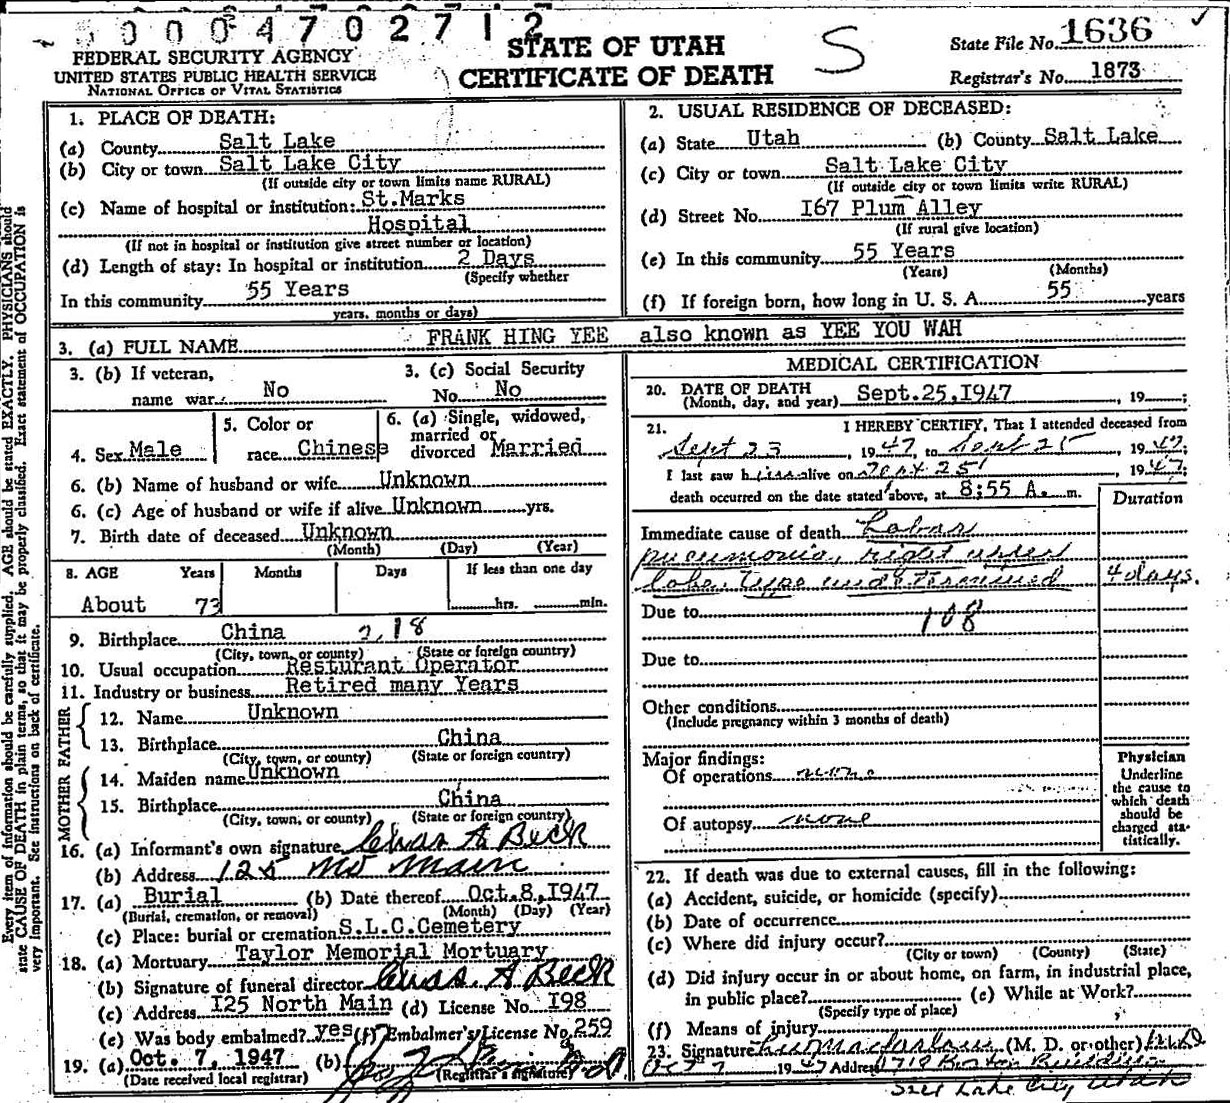 0004702712
FEDERAL SECURITY AGENCY
UNITED STATES PUBLIC HEALTH SERVICE
NATIONAL OFFICE OF VITAL STATISTICS
STATE OF UTAH
CERTIFICATE OF DEATH
S
State File No. 1636
Registrar's No. 1873
Every item of information should be carefully supplied. AGE should be stated EXACTLY. PHYSICIANS should
state CAUSE OF DEATH in plain terms, so that it may be properly classified. Exact statement of OCCUPATION is
very important. See instructions on back of certificate.
1. PLACE OF DEATH:
(a) County Salt Lake
(b) City or town Salt Lake City
(If outside city or town limits name RURAL)
(c) Name of hospital or institution: St.Marks
Hospital
(If not in hospital or institution give street number or location)
(d) Length of stay: In hospital or institution 2 Days
(Specify whether
In this community 55 Years
years, months or days)
2. USUAL RESIDENCE OF DECEASED:
(a) State Utah (b) County Salt Lake
(c) City or town Salt Lake City
(If outside city or town limits write RURAL)
(d) Street No. I67 Plum Alley
(If rural give location)
(e) In this community 55 Years
(Years) (Months)
(f) If foreign born, how long in U. S. A. 55 years
3. (a) FULL NAME FRANK HING YEE also known as YEE YOU WAH
3. (b) If veteran, name war No
3. (c) Social Security No. No
4. Sex Male
5. Color or race Chinese
6. (a) Single, widowed, married or divorced Married
6. (b) Name of husband or wife Unknown
6. (c) Age of husband or wife if alive Unknown yrs.
7. Birth date of deceased Unknown
(Month) (Day) (Year)
8. AGE Years Months Days If less than one day
About 73 hrs. min.
9. Birthplace China 218
(City, town, or county) (State or foreign country)
10. Usual occupation Resturant Operator
11. Industry or business Retired many Years
FATHER
12. Name Unknown
13. Birthplace China
(City, town, or county) (State or foreign country)
MOTHER
14. Maiden name Unknown
15. Birthplace China
(City, town, or county) (State or foreign country)
16. (a) Informant's own signature Chas A Beck
(b) Address 125 No Main
17. (a) Burial (b) Date thereof Oct.8,I947
(Burial, cremation, or removal) (Month) (Day) (Year)
(c) Place: burial or cremation S.L.C.Cemetery
18. (a) Mortuary Taylor Memorial Mortuary
(b) Signature of funeral director Chas. A Beck
(c) Address I25 North Main (d) License No. I98
(e) Was body embalmed? yes (f) Embalmer's License No. 259
19. (a) Oct. 7, 1947 (b)
(Date received local registrar) (Registrar's signature)
MEDICAL CERTIFICATION
20. DATE OF DEATH Sept.25,I947 , 19 ;
(Month, day, and year)
21. I HEREBY CERTIFY, That I attended deceased from
Sept 23, 1947, to Sept 25, 1947;
I last saw him alive on Sept 25, 1947;
death occurred on the date stated above, at 8:55 A. m.
Duration
Immediate cause of death Lobar
pneumonia, right upper
lobe. Type undetermined 4 days.
Due to 108
Due to
Other conditions
(Include pregnancy within 3 months of death)
Major findings:
Of operations none
Of autopsy none
Physician
Underline
the cause to
which death
should be
charged sta-
tistically.
22. If death was due to external causes, fill in the following:
(a) Accident, suicide, or homicide (specify)
(b) Date of occurrence
(c) Where did injury occur?
(City or town) (County) (State)
(d) Did injury occur in or about home, on farm, in industrial place,
in public place? (e) While at Work?
(Specify type of place)
(f) Means of injury
23. Signature (M. D. or other) M.D
Oct 7 1947 Address 1718 Boston Building
Salt Lake City Utah